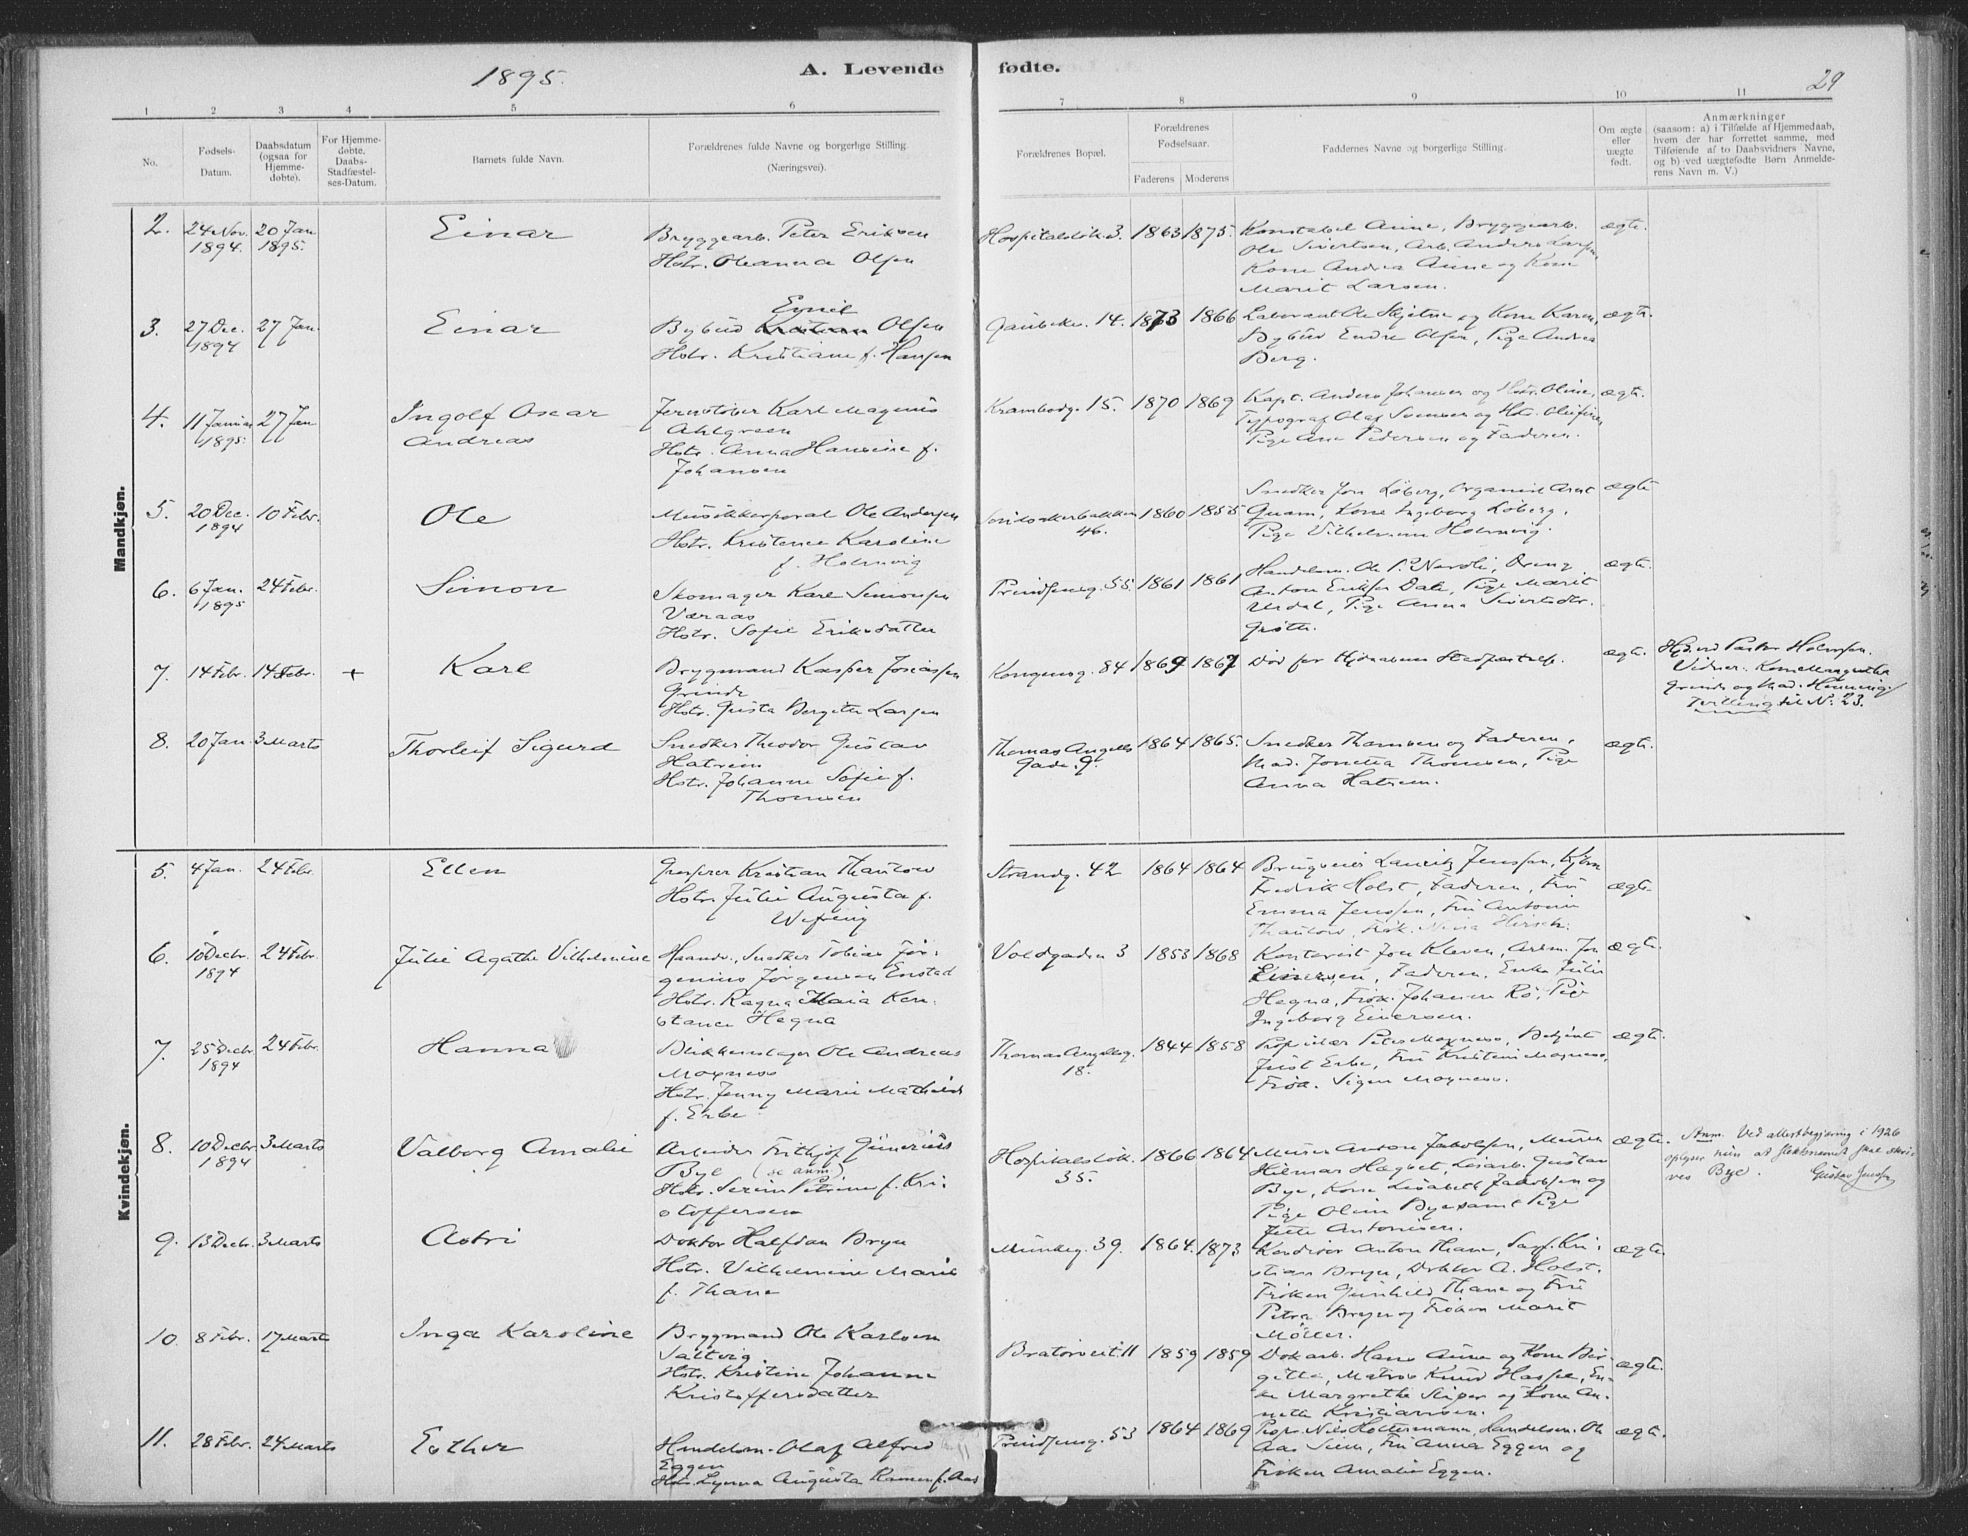 1895.
A. Levende fødte.
29
1 2 3 4 5 6 7 8 9 10 11
No.
Fødsels-
Datum.
Daabsdatum
(ogsaa for
Hjemme-
døbte).
For Hjemme-
døbte.
Daabs-
Stadfæstel-
ses-Datum.
Barnets fulde Navn.
Forældrenes fulde Navne og borgerlige Stilling.
(Næringsvei).
Forældrenes Bopæl.
Forældrenes
Fødselsaar.
Faderens Moderens
Faddernes Navne og borgerlige Stilling.
Om ægte
eller
uægte
født.
Anmærkninger
(saasom: a) i Tilfælde af Hjemmedaab,
hvem der har forrettet samme, med
Tilføiende af to Daabsvidners Navne,
og b) ved uægtefødte Børn Anmelde-
rens Navn m. V.)
Mandkjøn.
2. 24 Nov. 1894. 20 Jan 1895.
Einar
Bryggearb. Peter Eriksen
Hstr. Oleanna Olsen
Hospitalsløk. 3. 1863 1875.
Konstabel Aune, Bryggearb.
Ole Sivertsen, Arb. Anders Larsen,
Kone Andrea Aune og Kone
Marit Larsen.
ægte.
3. 27 Dec. 1894 27 Jan.
Einar
Emil
Bybud Kristian Olsen
Hstr. Kristiane f. Hansen
14. 1873 1866
Ole Skjetne og Kone Karen,
Bybud Endre Olsen, Pige Andrea
Berg.
ægte.
4. 11 Januar 1895. 27 Jan
Ingolf Oscar
Andreas
Jernstøber Karl Magnus
Ahlgreen
Hstr. Anna Hansine f.
Johansen
Krambodg. 15. 1870 1869
Kapt. Anders Johansen og Hstr. Oline,
Typograf Olaf Svensen og Hst. Olefine,
Pige Ane Pedersen og Faderen.
ægte.
5. 20 Dec. 1894 10 Febr.
Ole
Musikkorporal Ole Andersen
Hstr. Kristence Karoline
f. Holmvig
46. 1860 1855
Snedker Jon Løberg, Organist Arnt
Quam, Kone Ingeborg Løberg,
Pige Vilhelmine Holmvig.
ægte
6. 6 Jan. 1895 24 Febr.
Simon
Skomager Karl Simonsen
Væraas
Hstr. Sofie Eriksdatter
Prindsensg. 55 1861 1861
Handelsm. Ole P. Nardli, Dreng
Anton Eriksen Dale, Pige Marit
Urdal, Pige Anna Sivertsdtr.
ægte.
7. 14 Febr. 14 Febr. +
Karl
Brygmand Kasper Josiassen
Grinde
Hstr. Gusta Bergitte Larsen
Kongensg. 84 1869 1867
Død før Stadfæstelse.
ægte.
Hjd. ved Pastor Holmsen.
Vidner. Kone Margrethe
Grinde og Mad. Henning
Tvilling til No. 23.
8. 20 Jan 3 Marts
Thorleif Sigurd
Snedker Theodor Gustav
Hatrem
Hstr. Johanne Sofie f.
Thomsen
Thomas Angells
Gade 9. 1864 1865.
Snedker Thomsen og Faderen,
Mad. Jonetta Thomsen, Pige
Anna Hatrem.
ægte.
Kvindekjøn.
5. 4 Jan. 24 Febr.
Ellen
Grosserer Kristian Thaulow
Hstr. Julie Augusta f.
Wefring
Strandg. 42 1864 1864
Lauritz Jenssen, Kjbm
Fredrik Holst, Faderen, Fru
Emma Jenssen, Fru Antonie
Thaulow, Frøk. Hirsch.
ægte.
6. 10 Decbr. 1894 24 Febr.
Julie Agathe Vilhelmine
Haandv., Snedker Tobias Jør-
genius Jørgensen Enstad
Hstr. Ragna Maria Kon-
stance Hegna
Voldgaden 3 1853 1868
Kontorist Jon Kleven, Jon
Einersen, Faderen, Enke Julie
Hegna, Frøk. Johanne Rø, Pige
Ingeborg Einersen.
ægte.
7. 25 Decbr. 1894 24 Febr.
Hanna
Blikkenslager Ole Andreas
Moxness
Hstr. Jenny Marie Mathilde
f. Erbe
Thomas Angellsg.
18. 1844 1858
Peter Moxness, Betjent
Just Erbe, Fru Kristine Moxness,
Frøk. Signe Moxness.
ægte.
8. 10 Decbr. 1894 3 Marts
Valborg Amalie
Arbeider Frithjof Gunerius
Bye (se anm)
Hstr. Serine Petrine f. Kri-
stoffersen
Hospitalsløk.
35. 1866 1864
Murer Anton Jakobsen, Murer
Hilmar Hagbet, Gustav
Bye, Kone Lisabeth Jakobsen og
Pige Oline Bye samt Pige
Jette Antonisen.
ægte.
Anm. Ved attestbegjæring i 1926
oplyser hun at slektsnavnet skal skri-
ves Bye. Gustav Jenssen
9. 13 Decbr. 3 Marts
Astri
Doktor Halfdan Bryn
Hstr. Vilhelmine Marie
f. Thane
Munkeg. 39. 1864. 1873
Konditor Anton Thane, Sagf. Kri-
stian Bryn, Doktor A. Holst,
Frøken Gunhild Thane og Fru
Petra Bryn og Frøken Marit
Møller.
ægte.
10. 8 Febr. 17 Marts
Inga Karoline
Brygmand Ole Karlsen
Saltvig
Hstr. Kristine Johanne
Kristoffersdatter
Bratørveit. 11 1859 1859
Dokarb. Hans Aune og Kone Bir-
gitte, Matros Knud Haspe, En-
ke Margrethe og Kone An-
nette Kristiansen.
ægte.
11. 28 Febr. 24 Marts
Esther
Handelsm. Olaf Alfred
Eggen
Hstr. Augusta f. Aas
Prindsensg. 53 1864 1869
Nils Holtermann, Handelsm. Ole
Aas Siem, Fru Anna Eggen og
Frøken Amalie Eggen.
ægte.